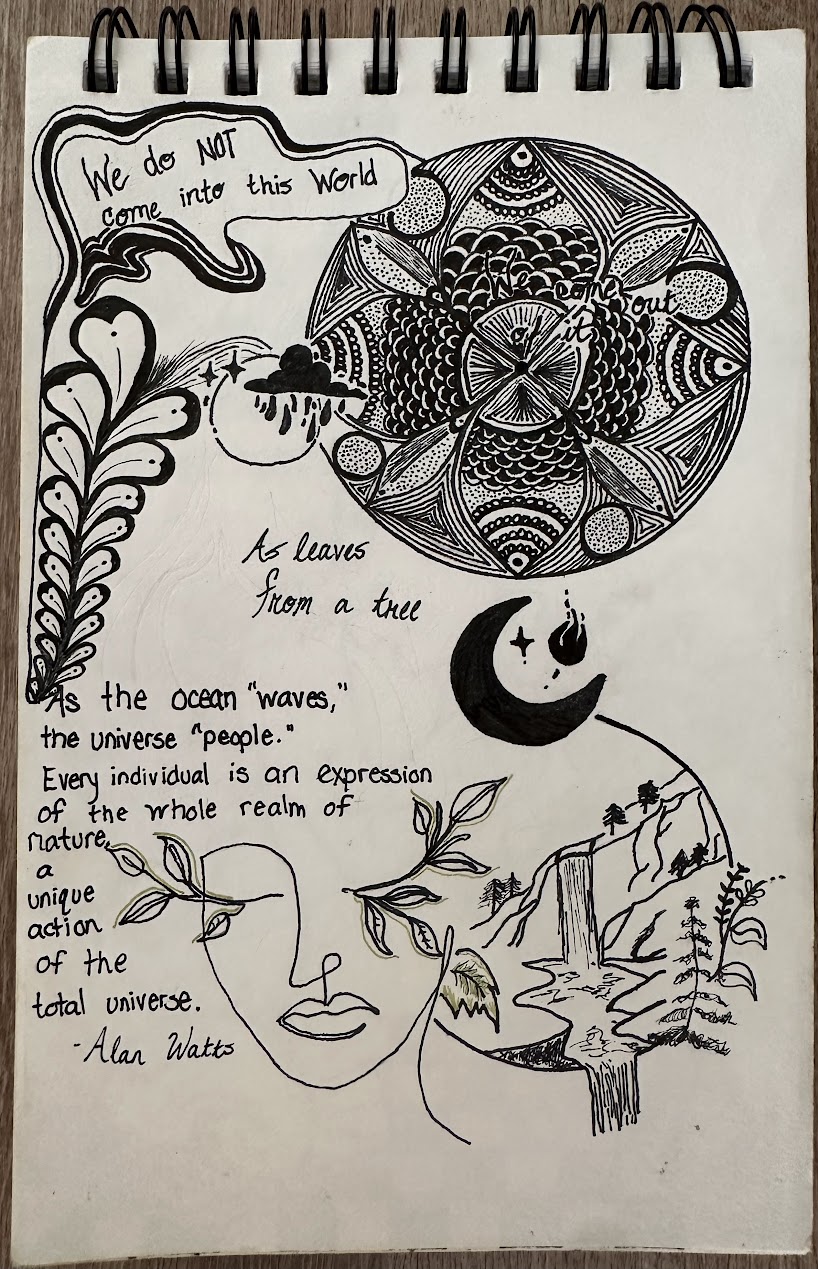 We do NOT
come into this World
We come out
of it
As leaves
from a tree
As the ocean "waves,"
the universe "people."
Every individual is an expression
of the whole realm of
nature,
a
unique
action
of the
total universe.
-Alan Watts